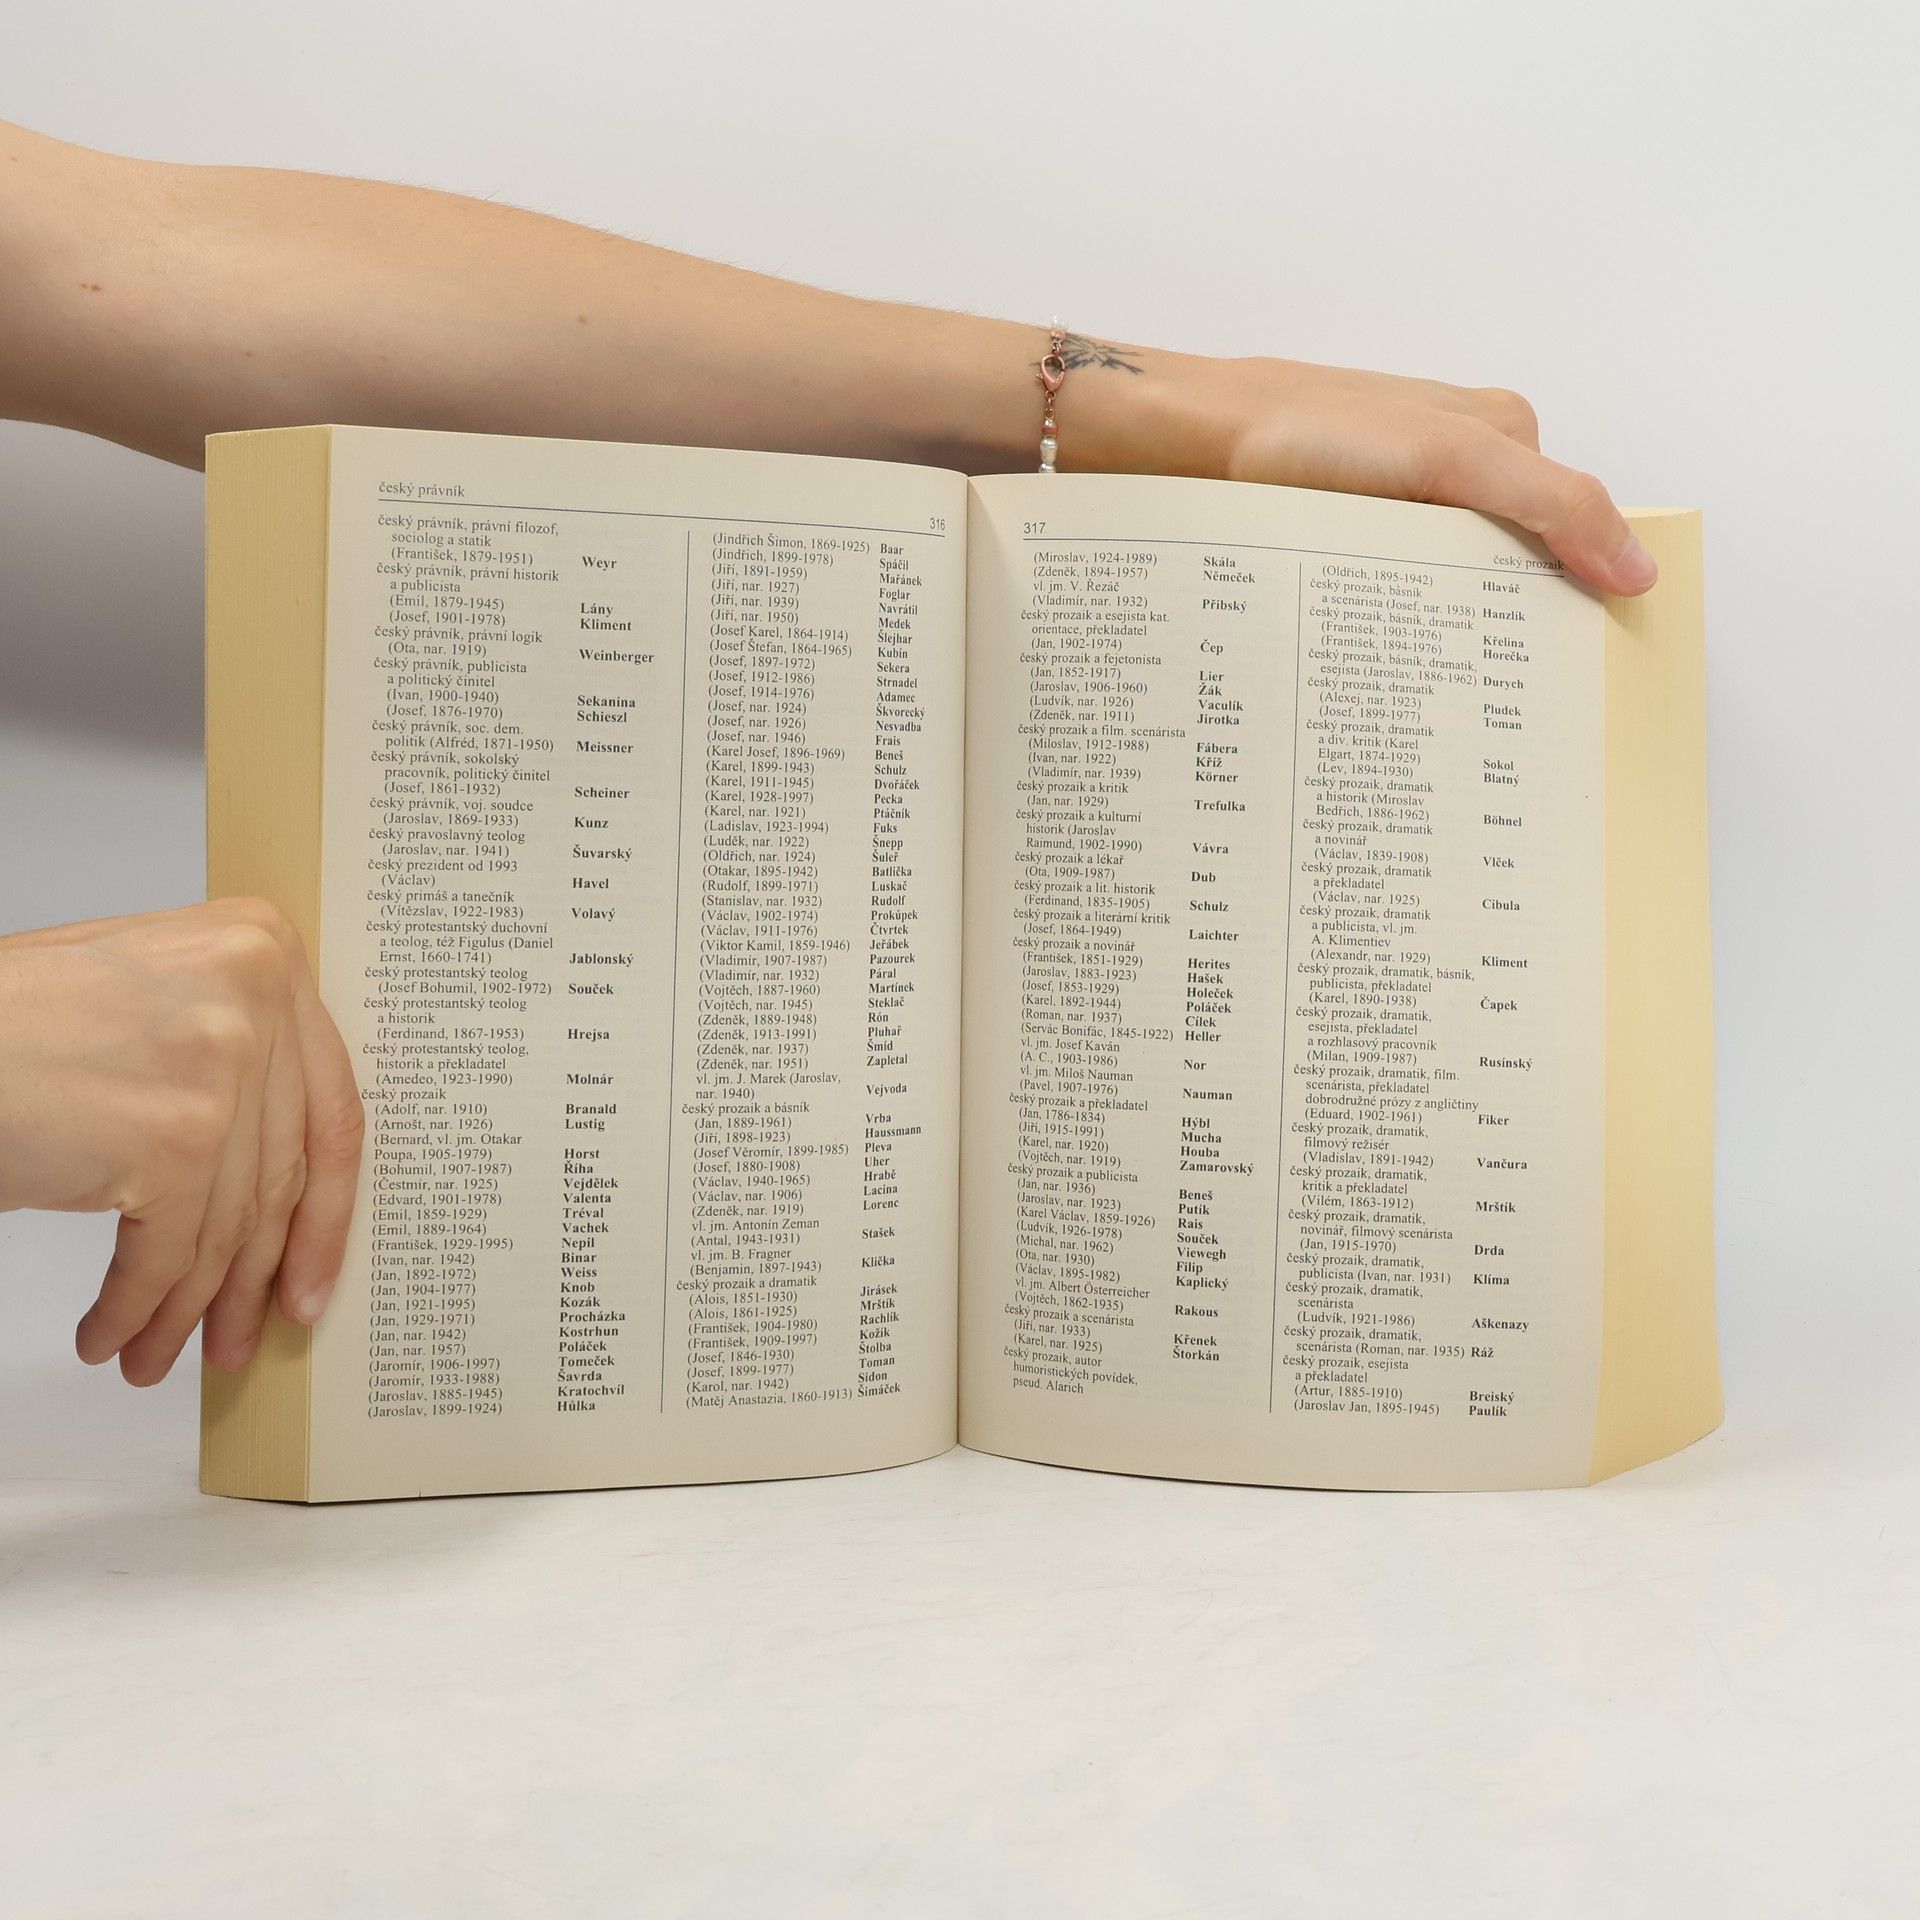 český právník
316
český právník, právní filozof,
sociolog a statik
(František, 1879-1951) Weyr
český právník, právní historik
a publicista
(Emil, 1879-1945) Lány
(Josef, 1901-1978) Kliment
český právník, právní logik
(Ota, nar. 1919) Weinberger
český právník, publicista
a politický činitel
(Ivan, 1900-1940) Sekanina
(Josef, 1876-1970) Schieszl
český právník, soc. dem.
politik (Alfréd, 1871-1950) Meissner
český právník, sokolský
pracovník, politický činitel
(Josef, 1861-1932) Scheiner
český právník, voj. soudce
(Jaroslav, 1869-1933) Kunz
český pravoslavný teolog
(Jaroslav, nar. 1941) Šuvarský
český prezident od 1993
(Václav) Havel
český primáš a tanečník
(Vítězslav, 1922-1983) Volavý
český protestantský duchovní
a teolog, též Figulus (Daniel
Ernst, 1660-1741) Jablonský
český protestantský teolog
(Josef Bohumil, 1902-1972) Souček
český protestantský teolog
a historik
(Ferdinand, 1867-1953) Hrejsa
český protestantský teolog,
historik a překladatel
(Amedeo, 1923-1990) Molnár
český prozaik
(Adolf, nar. 1910) Branald
(Arnošt, nar. 1926) Lustig
(Bernard, vl. jm. Otakar
Poupa, 1905-1979) Horst
(Bohumil, 1907-1987) Říha
(Čestmír, nar. 1925) Vejdělek
(Edvard, 1901-1978) Valenta
(Emil, 1859-1929) Tréval
(Emil, 1889-1964) Vachek
(František, 1929-1995) Nepil
(Ivan, nar. 1942) Binar
(Jan, 1892-1972) Weiss
(Jan, 1904-1977) Knob
(Jan, 1921-1995) Kozák
(Jan, 1929-1971) Procházka
(Jan, nar. 1942) Kostrhun
(Jan, nar. 1957) Poláček
(Jaromír, 1906-1997) Tomeček
(Jaromír, 1933-1988) Šavrda
(Jaroslav, 1885-1945) Kratochvíl
(Jaroslav, 1899-1924) Hůlka
(Jindřich Šimon, 1869-1925) Baar
(Jindřich, 1899-1978) Spáčil
(Jiří, 1891-1959) Mařánek
(Jiří, nar. 1927) Foglar
(Jiří, nar. 1939) Navrátil
(Jiří, nar. 1950) Medek
(Josef Karel, 1864-1914) Šlejhar
(Josef Štefan, 1864-1965) Kubín
(Josef, 1897-1972) Sekera
(Josef, 1912-1986) Strnadel
(Josef, 1914-1976) Adamec
(Josef, nar. 1924) Škvorecký
(Josef, nar. 1926) Nesvadba
(Josef, nar. 1946) Frais
(Karel Josef, 1896-1969) Beneš
(Karel, 1899-1943) Schulz
(Karel, 1911-1945) Dvořáček
(Karel, 1928-1997) Pecka
(Karel, nar. 1921) Ptáčník
(Ladislav, 1923-1994) Fuks
(Luděk, nar. 1922) Šnepp
(Oldřich, nar. 1924) Šuleř
(Otakar, 1895-1942) Batlička
(Rudolf, 1899-1971) Luskač
(Stanislav, nar. 1932) Rudolf
(Václav, 1902-1974) Prokůpek
(Václav, 1911-1976) Čtvrtek
(Viktor Kamil, 1859-1946) Jeřábek
(Vladimír, 1907-1987) Pazourek
(Vladimír, nar. 1932) Páral
(Vojtěch, 1887-1960) Martínek
(Vojtěch, nar. 1945) Steklač
(Zdeněk, 1889-1948) Rón
(Zdeněk, 1913-1991) Pluhař
(Zdeněk, nar. 1937) Šmíd
(Zdeněk, nar. 1951) Zapletal
vl. jm. J. Marek (Jaroslav,
nar. 1940) Vejvoda
český prozaik a básník
(Jan, 1889-1961) Vrba
(Jiří, 1898-1923) Haussmann
(Josef Věromír, 1899-1985) Pleva
(Josef, 1880-1908) Uher
(Václav, 1940-1965) Hrabě
(Václav, nar. 1906) Lacina
(Zdeněk, nar. 1919) Lorenc
vl. jm. Antonín Zeman
(Antal, 1943-1931) Stašek
vl. jm. B. Fragner
(Benjamin, 1897-1943) Klička
český prozaik a dramatik
(Alois, 1851-1930) Jirásek
(Alois, 1861-1925) Mrštík
(František, 1904-1980) Rachlík
(František, 1909-1997) Kožík
(Josef, 1846-1930) Štolba
(Josef, 1899-1977) Toman
(Karol, nar. 1942) Sidon
(Matěj Anastazia, 1860-1913) Šimáček
317
český prozaik
(Miroslav, 1924-1989) Skála
(Zdeněk, 1894-1957) Němeček
vl. jm. V. Řezáč
(Vladimír, nar. 1932) Přibský
český prozaik a esejista kat.
orientace, překladatel
(Jan, 1902-1974) Čep
český prozaik a fejetonista
(Jan, 1852-1917) Lier
(Jaroslav, 1906-1960) Žák
(Ludvík, nar. 1926) Vaculík
(Zdeněk, nar. 1911) Jirotka
český prozaik a film. scenárista
(Miloslav, 1912-1988) Fábera
(Ivan, nar. 1922) Kříž
(Vladimír, nar. 1939) Körner
český prozaik a kritik
(Jan, nar. 1929) Trefulka
český prozaik a kulturní
historik (Jaroslav
Raimund, 1902-1990) Vávra
český prozaik a lékař
(Ota, 1909-1987) Dub
český prozaik a lit. historik
(Ferdinand, 1835-1905) Schulz
český prozaik a literární kritik
(Josef, 1864-1949) Laichter
český prozaik a novinář
(František, 1851-1929) Herites
(Jaroslav, 1883-1923) Hašek
(Josef, 1853-1929) Holeček
(Karel, 1892-1944) Poláček
(Roman, nar. 1937) Cílek
(Servác Bonifác, 1845-1922) Heller
vl. jm. Josef Kaván
(A. C., 1903-1986) Nor
vl. jm. Miloš Nauman
(Pavel, 1907-1976) Nauman
český prozaik a překladatel
(Jan, 1786-1834) Hýbl
(Jiří, 1915-1991) Mucha
(Karel, nar. 1920) Houba
(Vojtěch, nar. 1919) Zamarovský
český prozaik a publicista
(Jan, nar. 1936) Beneš
(Jaroslav, nar. 1923) Putík
(Karel Václav, 1859-1926) Rais
(Ludvík, 1926-1978) Souček
(Michal, nar. 1962) Viewegh
(Ota, nar. 1930) Filip
(Václav, 1895-1982) Kaplický
vl. jm. Albert Österreicher
(Vojtěch, 1862-1935) Rakous
český prozaik a scenárista
(Jiří, nar. 1933) Křenek
(Karel, nar. 1925) Štorkán
český prozaik, autor
humoristických povídek,
pseud. Alarich
(Oldřich, 1895-1942) Hlaváč
český prozaik, básník
a scenárista (Josef, nar. 1938) Hanzlík
český prozaik, básník, dramatik
(František, 1903-1976) Křelina
(František, 1894-1976) Horečka
český prozaik, básník, dramatik,
esejista (Jaroslav, 1886-1962) Durych
český prozaik, dramatik
(Alexej, nar. 1923) Pludek
(Josef, 1899-1977) Toman
český prozaik, dramatik
a div. kritik (Karel
Elgart, 1874-1929) Sokol
(Lev, 1894-1930) Blatný
český prozaik, dramatik
a historik (Miroslav
Bedřich, 1886-1962) Böhnel
český prozaik, dramatik
a novinář
(Václav, 1839-1908) Vlček
český prozaik, dramatik
a překladatel
(Václav, nar. 1925) Cibula
český prozaik, dramatik
a publicista, vl. jm.
A. Klimentiev
(Alexandr, nar. 1929) Kliment
český prozaik, dramatik, básník,
publicista, překladatel
(Karel, 1890-1938) Čapek
český prozaik, dramatik,
esejista, překladatel
a rozhlasový pracovník
(Milan, 1909-1987) Rusínský
český prozaik, dramatik, film.
scenárista, překladatel
dobrodružné prózy z angličtiny
(Eduard, 1902-1961) Fiker
český prozaik, dramatik,
filmový režisér
(Vladislav, 1891-1942) Vančura
český prozaik, dramatik,
kritik a překladatel
(Vilém, 1863-1912) Mrštík
český prozaik, dramatik,
novinář, filmový scenárista
(Jan, 1915-1970) Drda
český prozaik, dramatik,
publicista (Ivan, nar. 1931) Klíma
český prozaik, dramatik,
scenárista
(Ludvík, 1921-1986) Aškenazy
český prozaik, dramatik,
scenárista (Roman, nar. 1935) Ráž
český prozaik, esejista
a překladatel
(Artur, 1885-1910) Breiský
(Jaroslav Jan, 1895-1945) Paulík